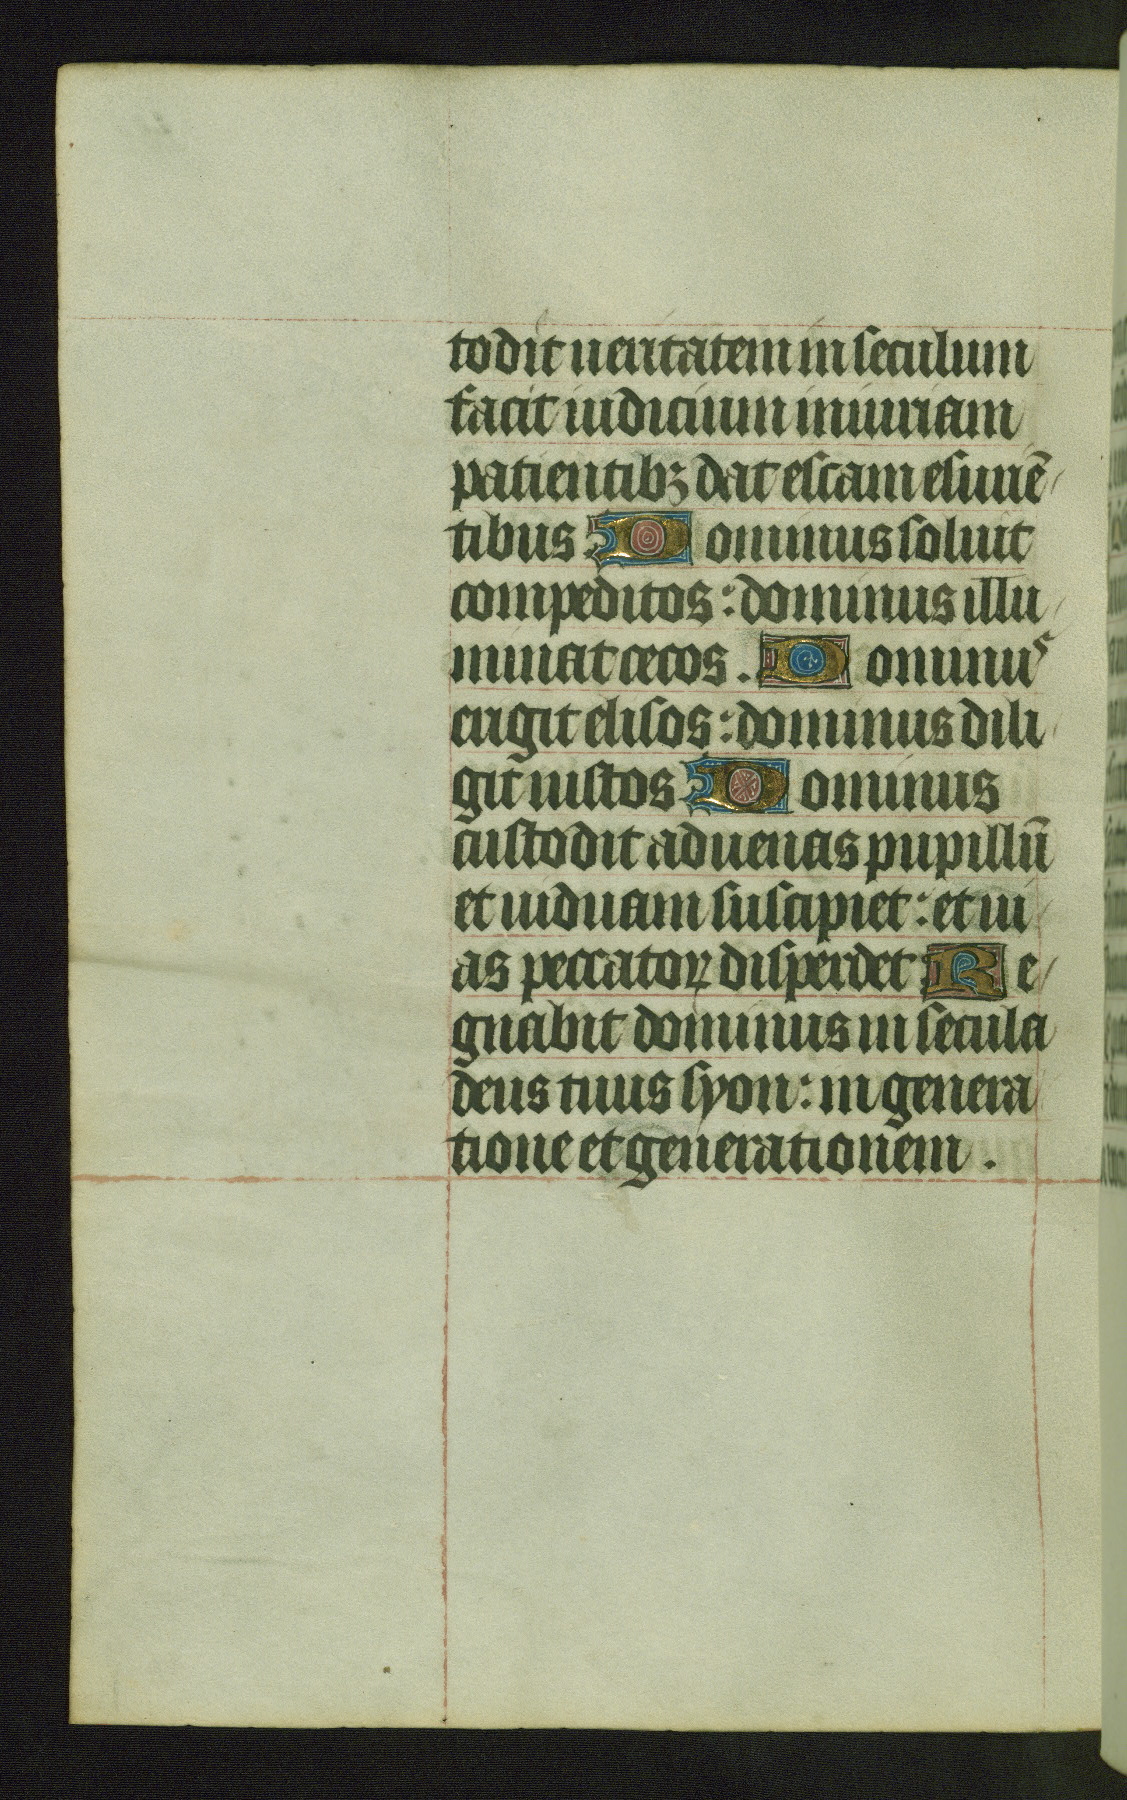 todit ueritatem in seculum
facit iudicium iniuriam
patientibꝫ dat escam esuriē
tibus Dominus soluit
compeditos : dominus illu
minat cecos . Dominus
erigit elisos : dominus dili
git iustos Dominus
custodit aduenas pupillū
et uiduam suscipiet : et ui
as peccatoꝝ disperdet Re
gnabit dominus in secula
deus tuus syon : in genera
tione et generationem .